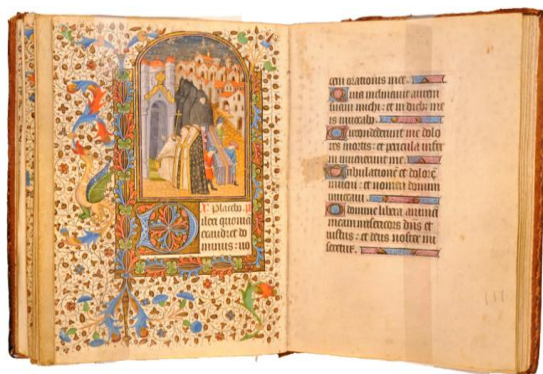 Placebo.
Dilexi quoniã
exaudiet do
minus: uo
cem orationis mee.
Quia inclinauit aurem
suam michi: et in dieb; me
is inuocabo.
Circondederunt me dolo
res mortis: et pericula infer
ni inuenerunt me.
Tribulationẽ et dolorẽ
inueni: et nomen domini
inuocaui.
O domine libera animã
meam misericors dñs et
iustus: et deus noster mi
seretur.